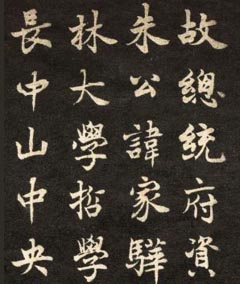 故總統府資
朱公諱家驊
林大學哲學
長中山中央